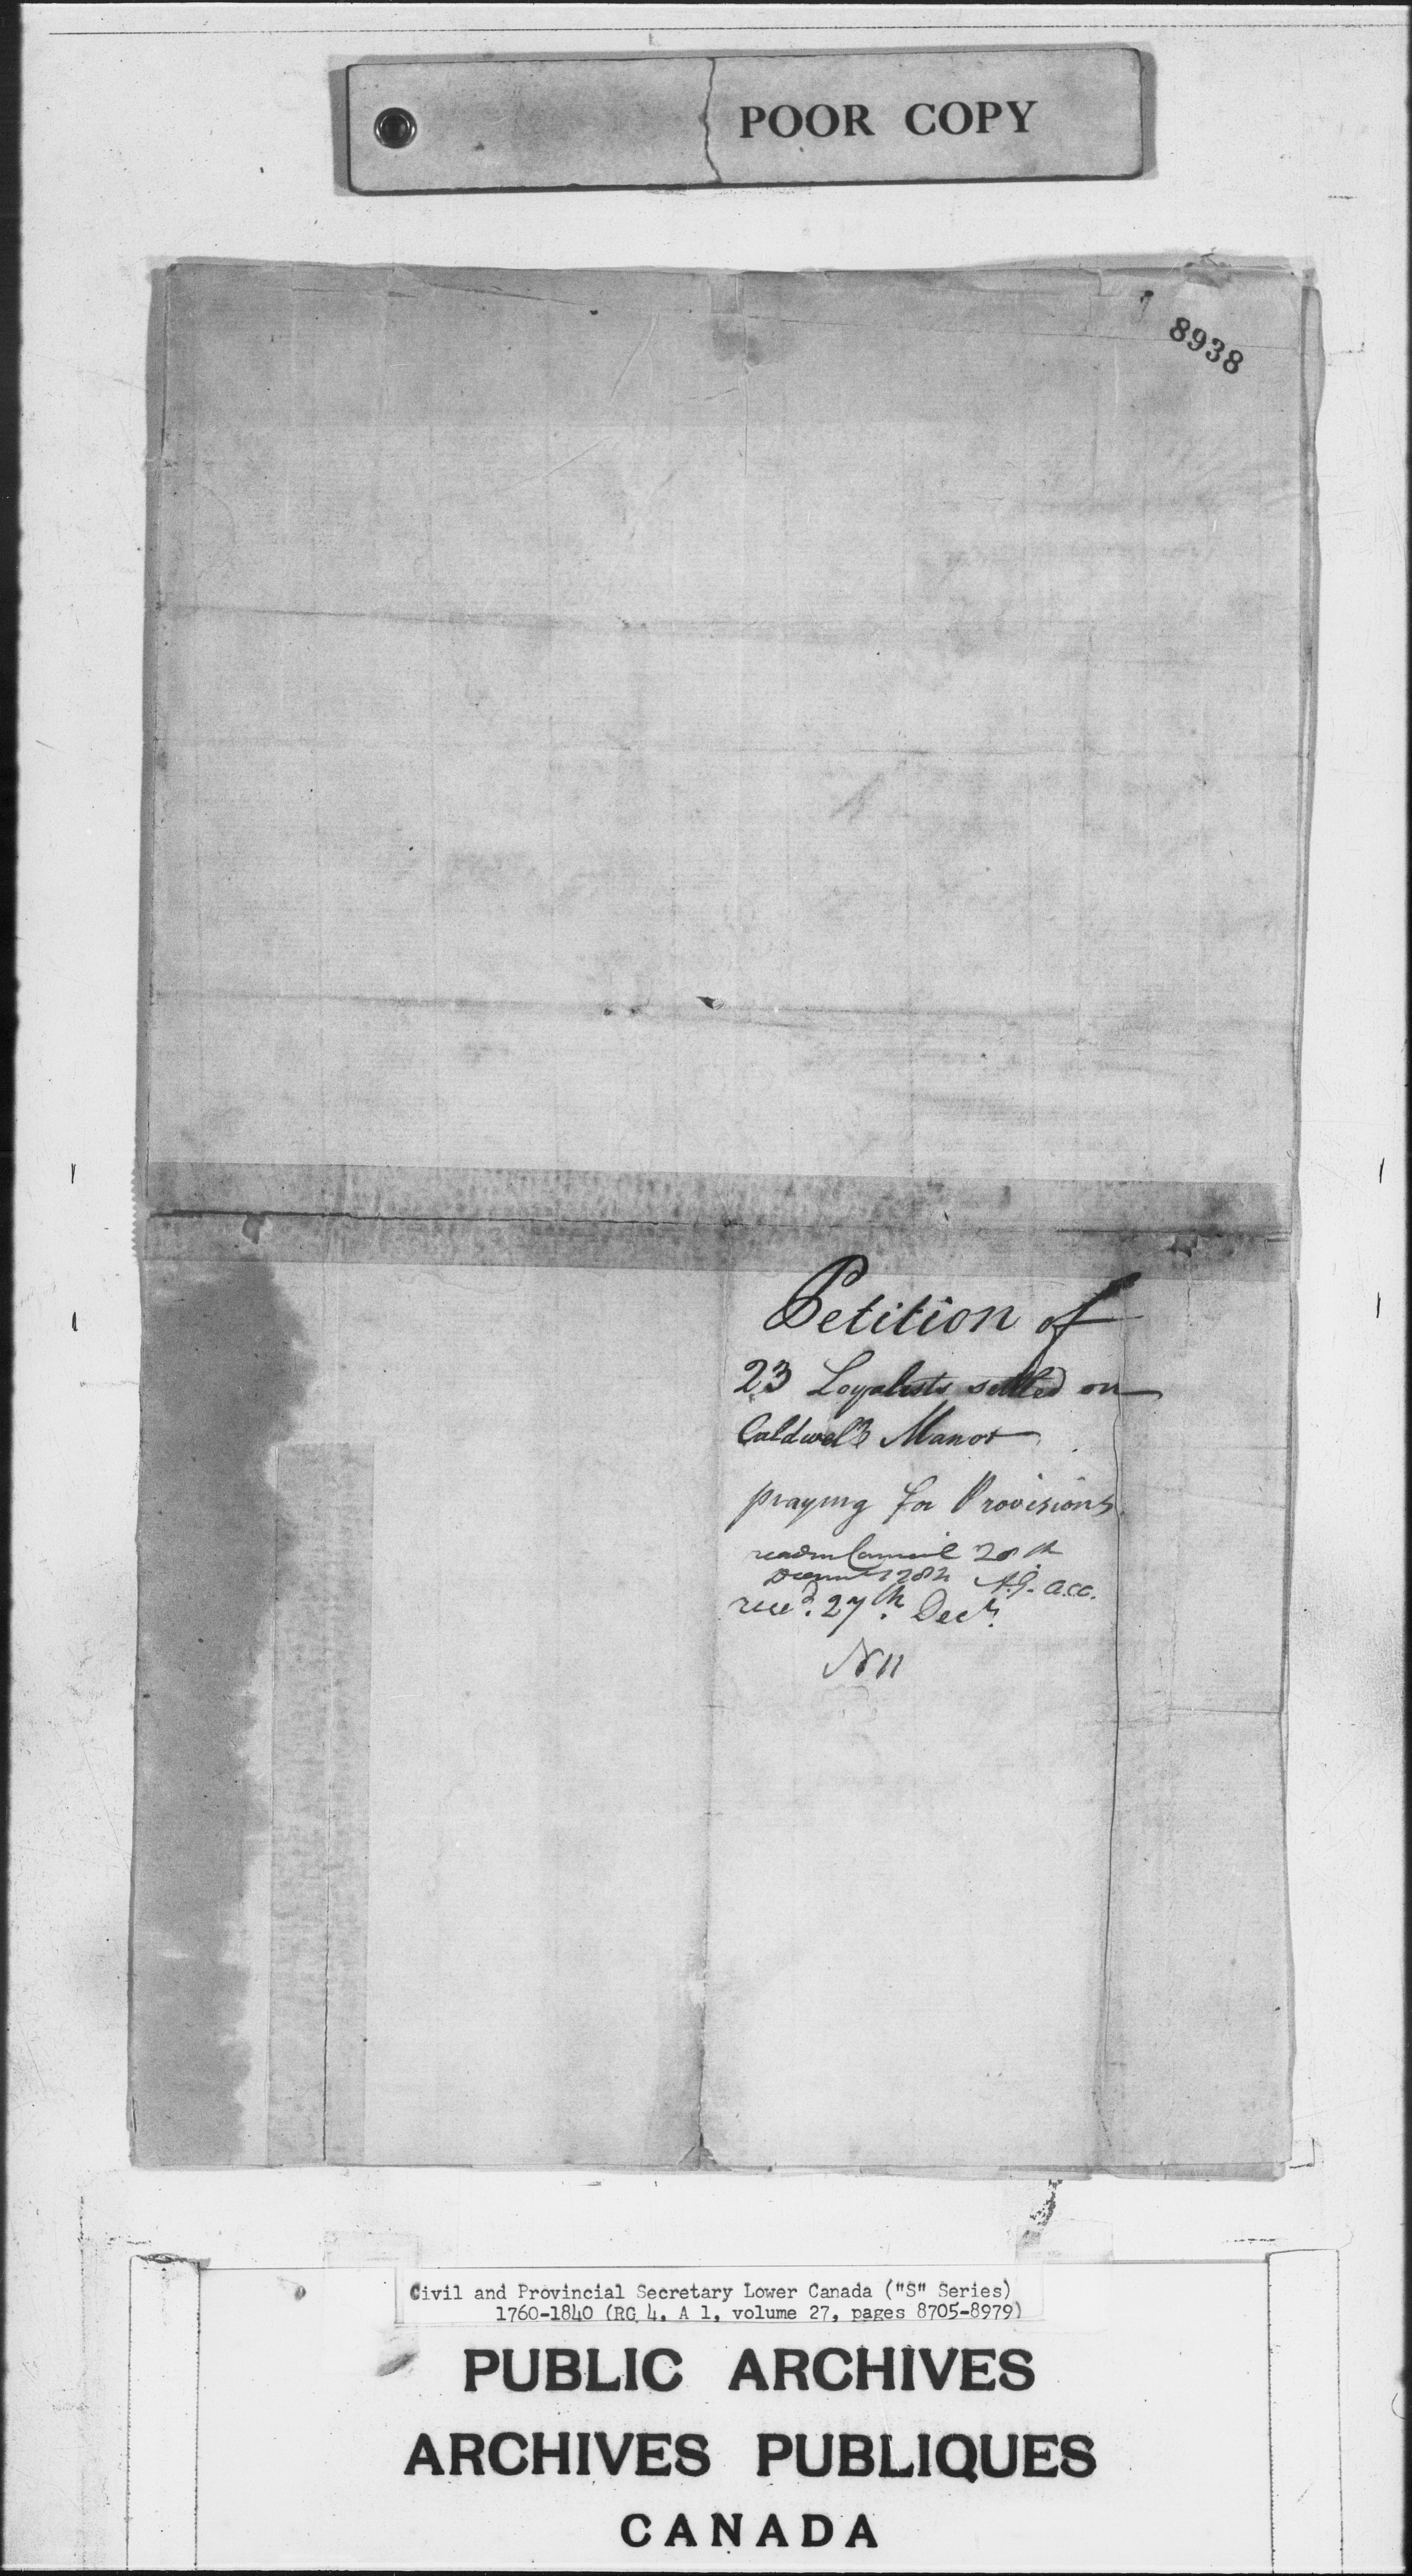 POOR COPY
8938
Petition of
23 Loyalists settled on
Caldwel's Manor
praying for Provisions
read in Council 28th
A.G. a.c.c.
rece'd. 27th. Decr.
N 11
Civil and Provincial Secretary Lower Canada ("S" Series)
1760-1840 (RG 4, A 1, volume 27, pages 8705-8979)
PUBLIC ARCHIVES
ARCHIVES PUBLIQUES
CANADA